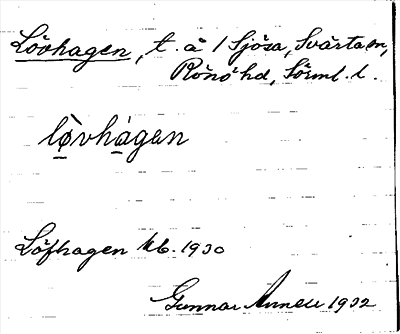 Lövhagen, t. å 1 Sjösa, Svärta sn,
Rönö hd, Sörml. l.
lø̀vhagen
Löfhagen kb. 1930
Gunnar Annell 1932